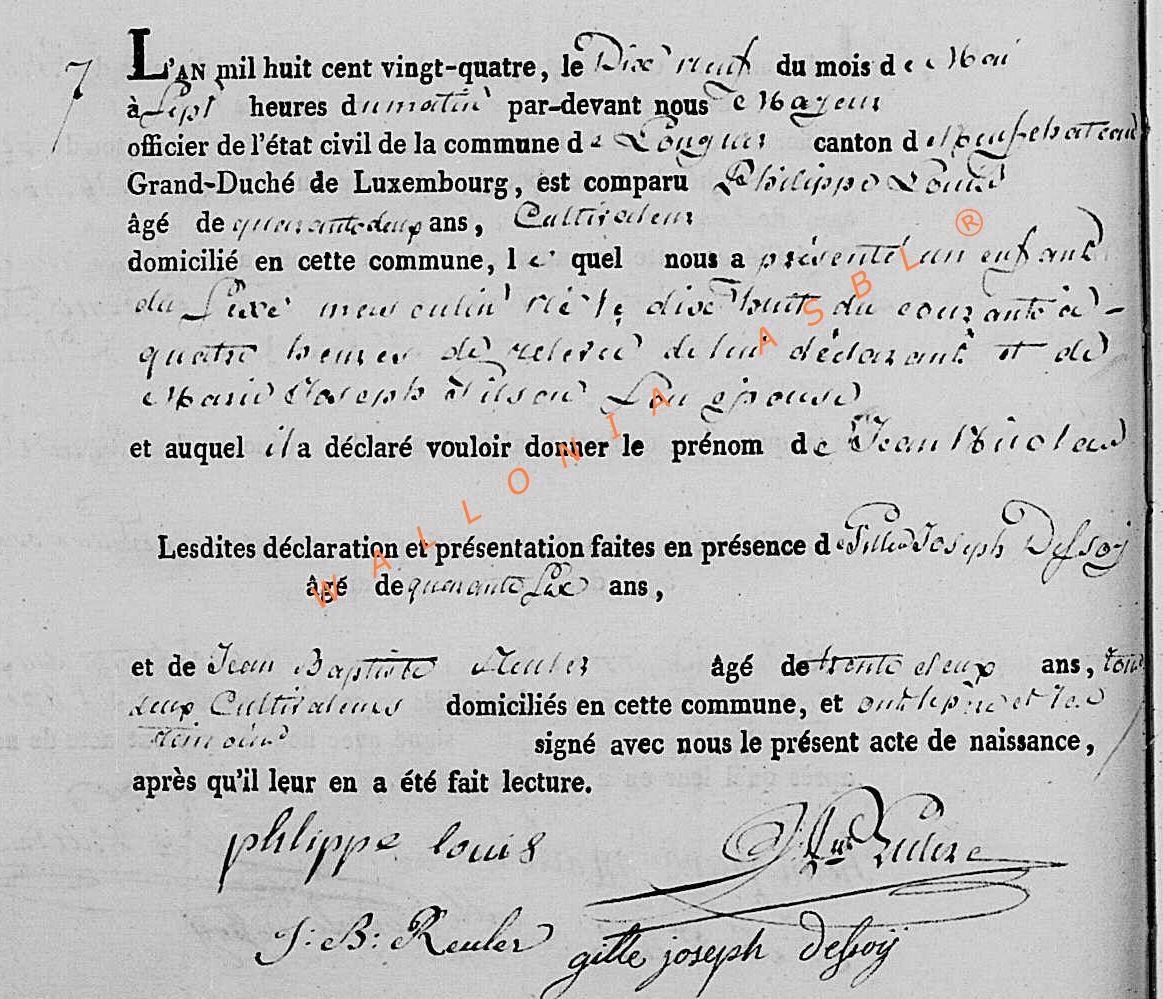 7
L'AN mil huit cent vingt-quatre, le Dix neuf du mois de Mai
à Sept heures du matin par-devant nous Mayeur
officier de l'état civil de la commune de Longlier canton de Neufchateau
Grand-Duché de Luxembourg, est comparu Philippe Louis
âgé de quarante deux ans, Cultivateur
domicilié en cette commune, le quel nous a présenté un enfant
du Sexe masculin né le dix huit du courant à
quatre heures de relevée de lui déclarant et de
Marie Joseph son épouse
et auquel il a déclaré vouloir donner le prénom de Jean Nicolas
Lesdites déclaration et présentation faites en présence de Gille Joseph Dessoy
âgé de quarante Six ans,
et de Jean Baptiste Reuler âgé de trente deux ans, tous
deux Cultivateurs domiciliés en cette commune, et ont le père et les
témoins signé avec nous le présent acte de naissance,
après qu'il leur en a été fait lecture.
phlippe louis
J: B: Reuler gille joseph dessoÿ
WALLONIA ASBL ®